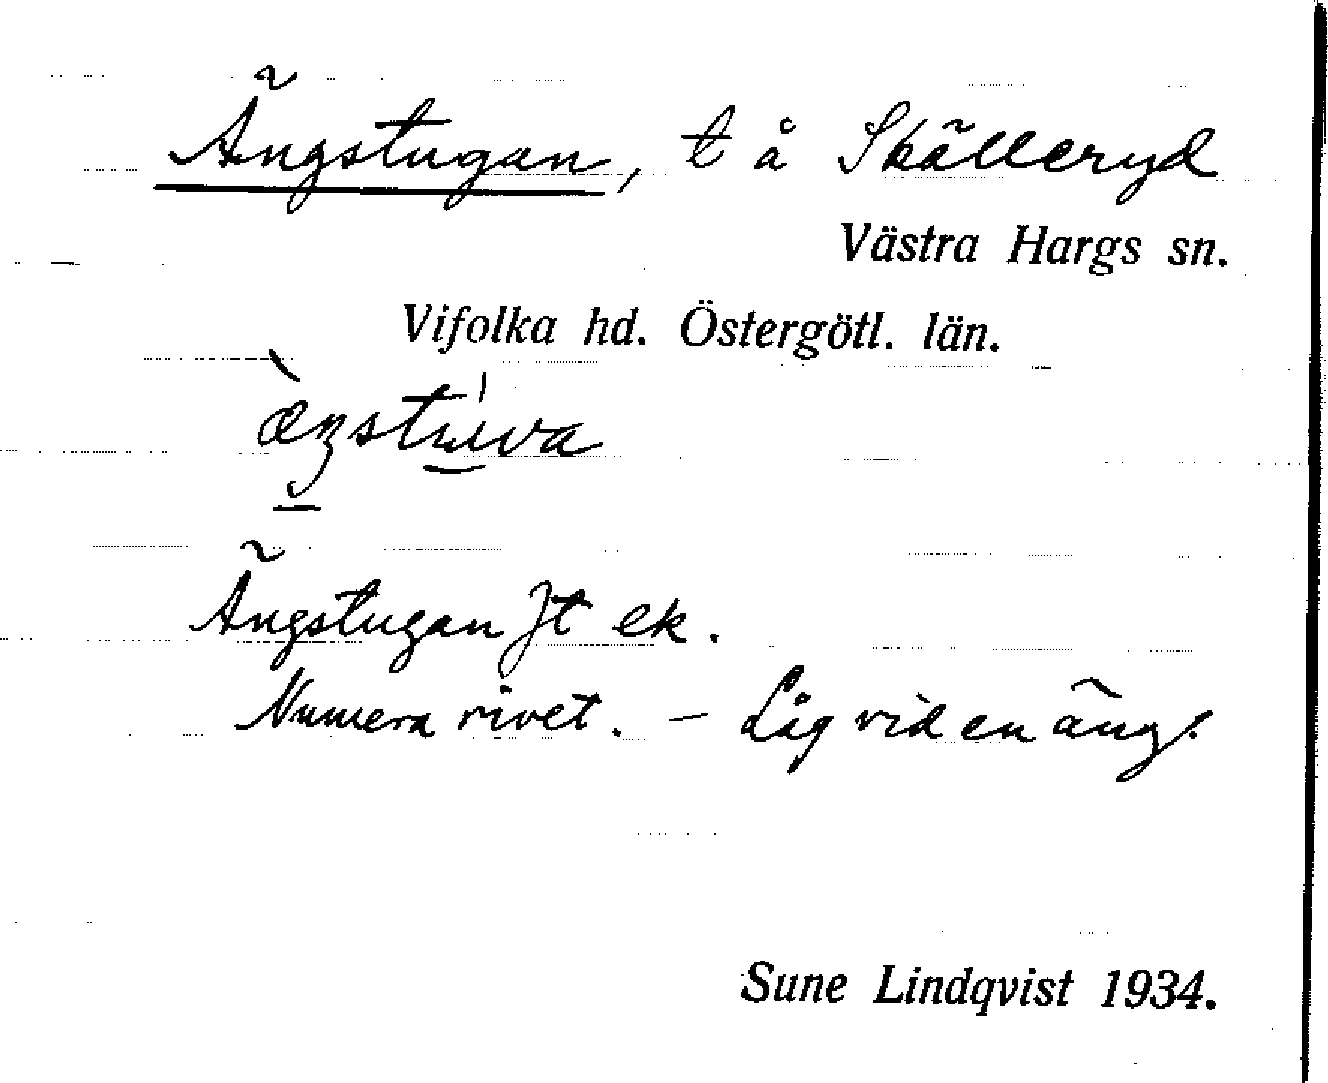 Ängstugan, t å Skälleryd
Västra Hargs sn.
Vifolka hd. Östergötl. län.
Ängstugan Jt ek.
Numera rivet. – Låg vid en äng.
Sune Lindqvist 1934.